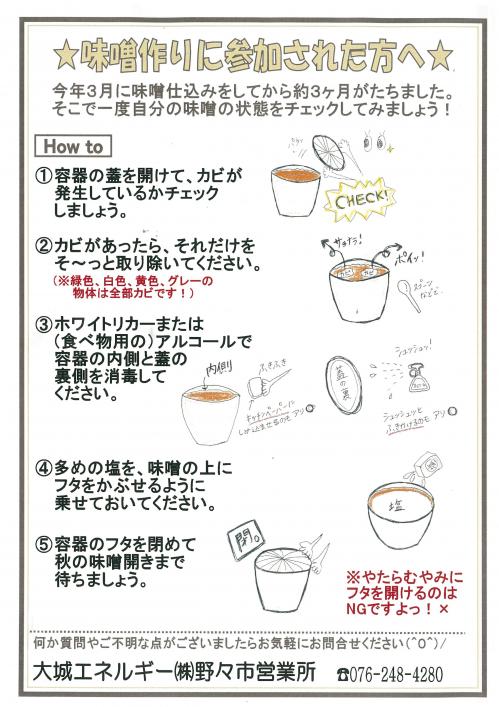 ★味噌作りに参加された方へ★
今年3月に味噌仕込みをしてから約3ヶ月がたちました。
そこで一度自分の味噌の状態をチェックしてみましょう！
How to
①容器の蓋を開けて、カビが
発生しているかチェック
しましょう。
CHECK!
②カビがあったら、それだけを
そ～っと取り除いてください。
(※緑色、白色、黄色、グレーの
物体は全部カビです！)
サヨナラ!
ポイッ!
カビ
カビ
スプーン
などで。
③ホワイトリカーまたは
(食べ物用の)アルコールで
容器の内側と蓋の
裏側を消毒して
ください。
内側
ふきふき
キッチンペーパーに
しみ込ませるのもアリ
蓋の裏
シュッシュッ!
シュッシュッと
ふきかけるのもアリ
④多めの塩を、味噌の上に
フタをかぶせるように
乗せておいてください。
塩
⑤容器のフタを閉めて
秋の味噌開きまで
待ちましょう。
閉。
※やたらむやみに
フタを開けるのは
NGですよっ！×
何か質問やご不明な点がございましたらお気軽にお問合せください(^O^)/
大城エネルギー㈱野々市営業所 ☎076-248-4280